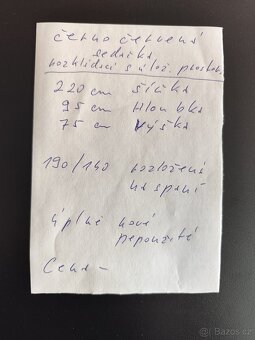 černo červená
sedačka
rozkládací s úlož. prostor.
220 cm šířka
95 cm hloubka
75 cm výška
190/140 rozložená
na spaní
úplně nové
nepoužité
Cena -
Sbazar.cz